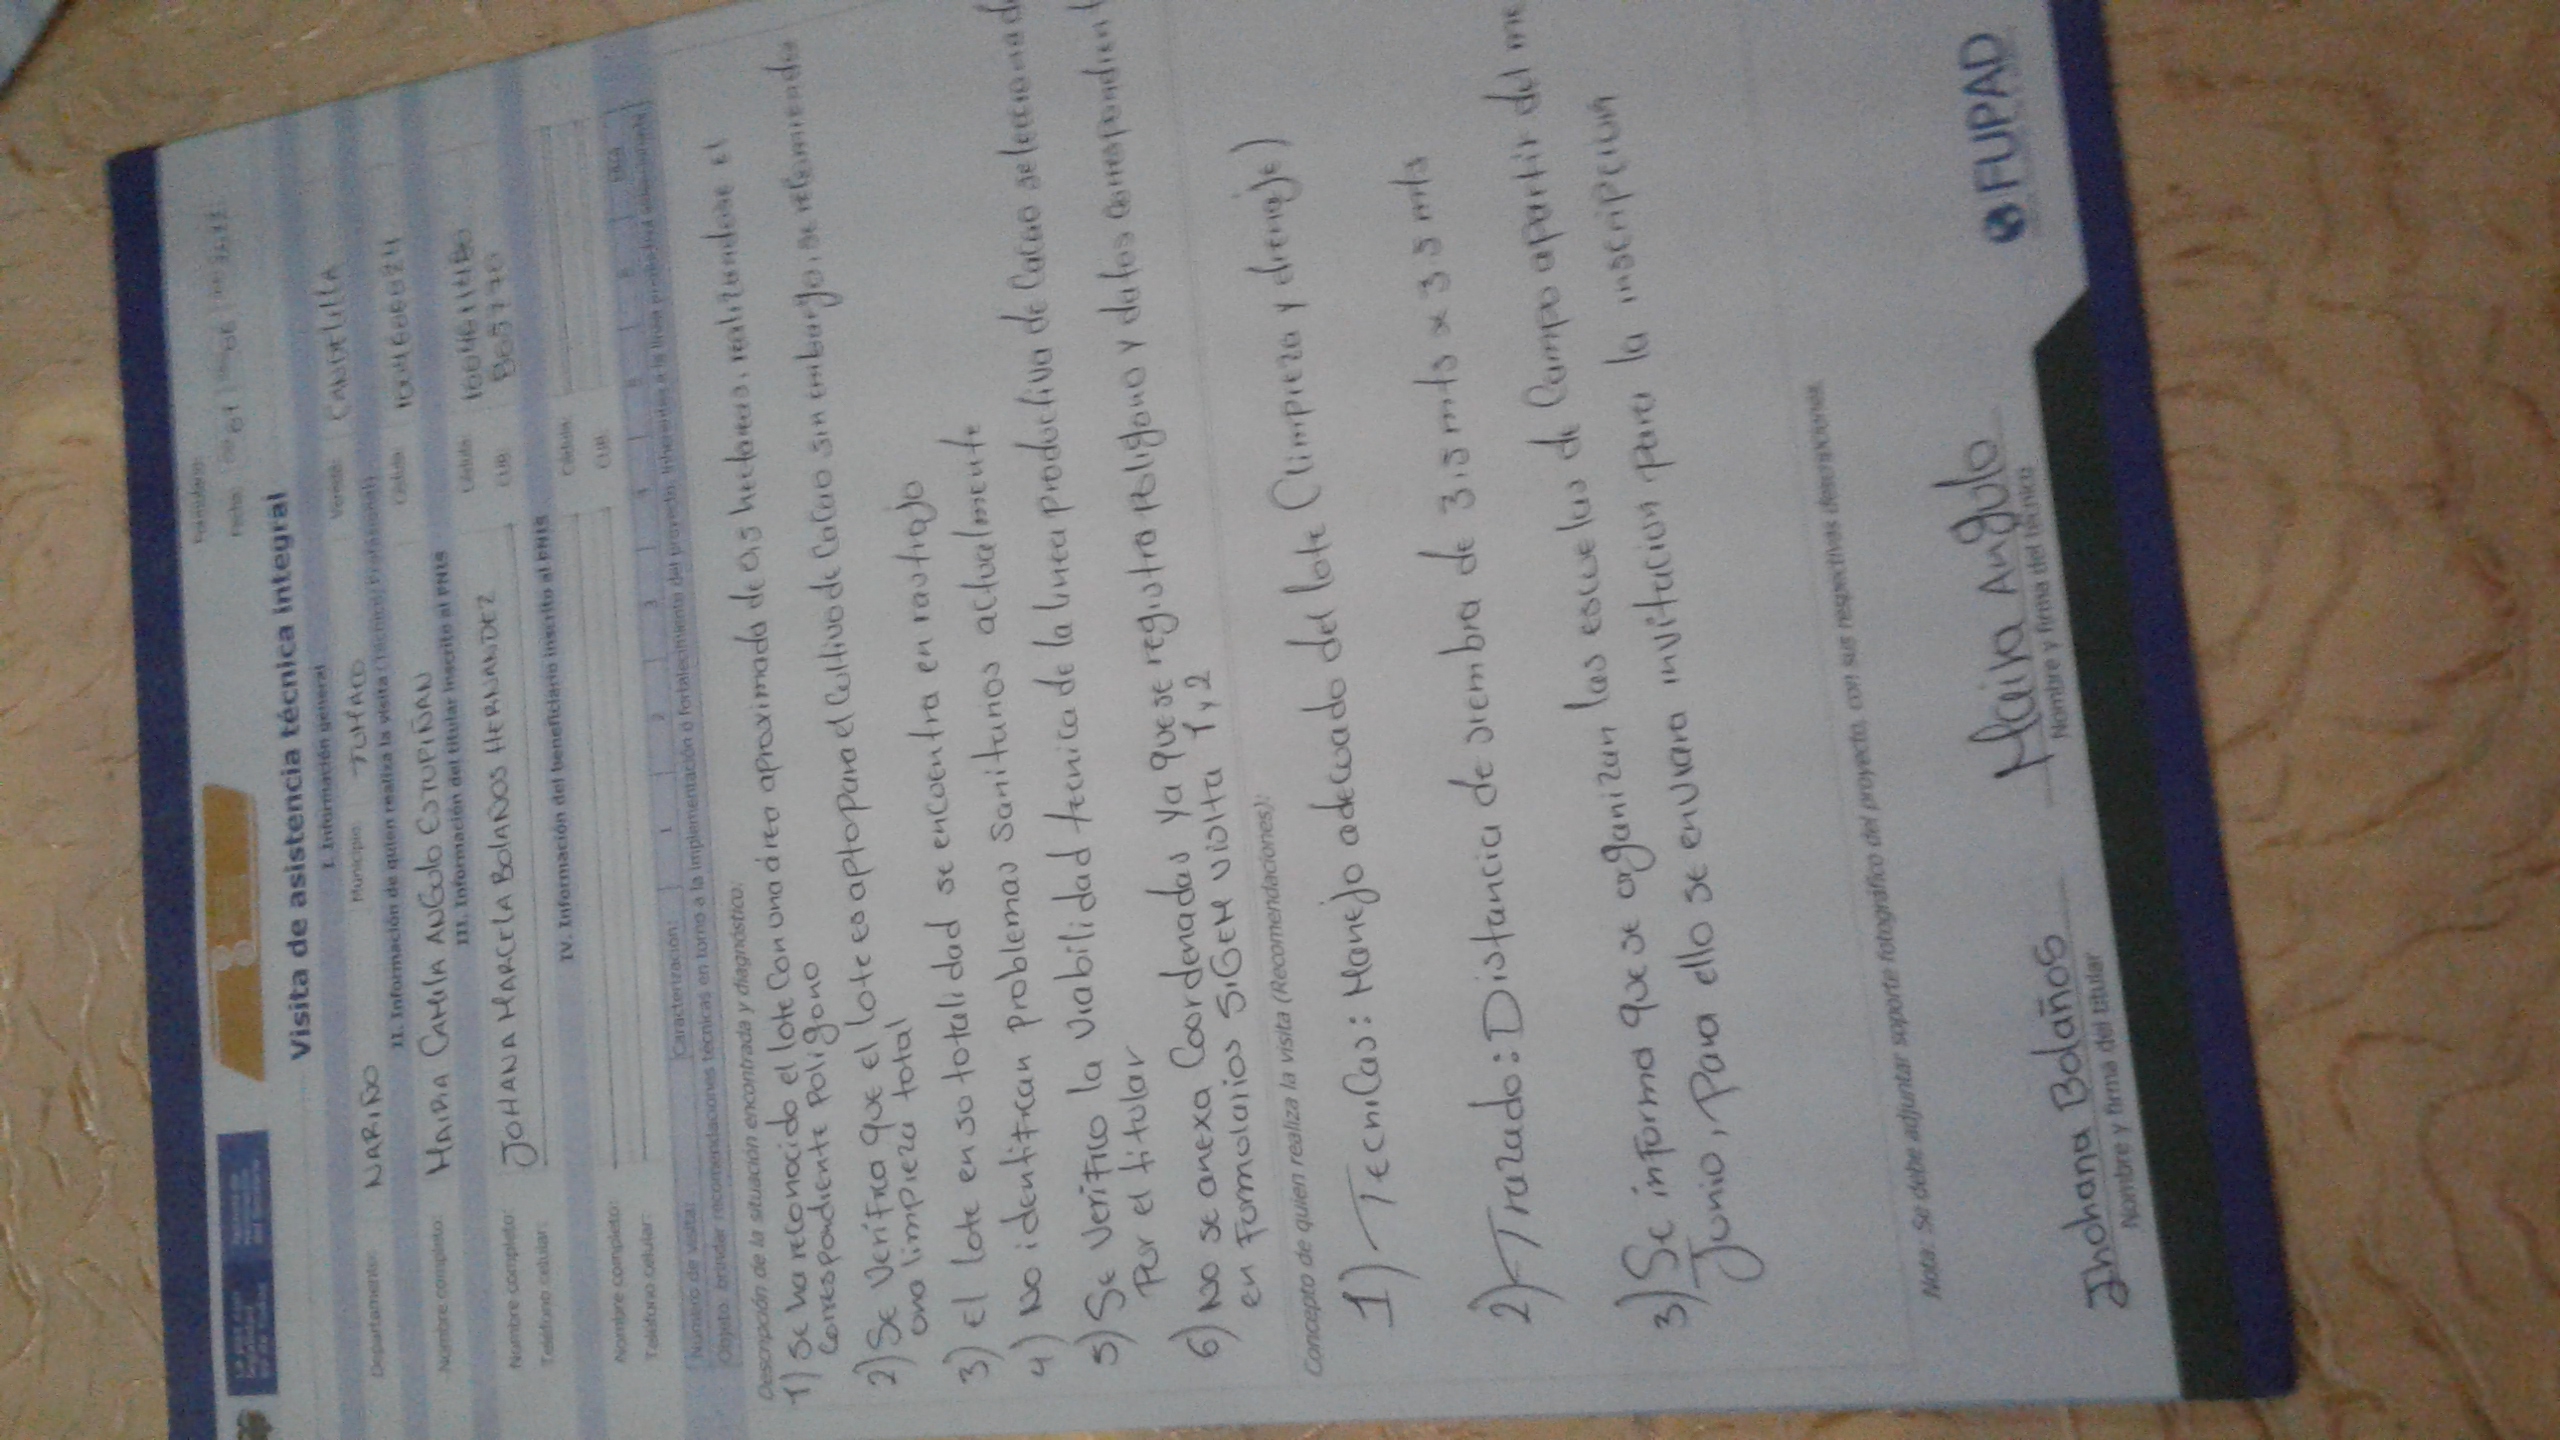 Formulario:
Fecha:
Visita de asistencia técnica integral
I. Información general
Departamento: NARIÑO Municipio: TUMACO Vereda: CANDELILLA
II. Información de quien realiza la visita (Técnico/Profesional)
Nombre completo: MAIRA CAMILA ANGULO ESTUPIÑAN Cédula:
III. Información del titular inscrito al PNIS
Nombre completo: JOHANA MARCELA BOLAÑOS HERNANDEZ Cédula:
Teléfono celular: CUB:
IV. Información del beneficiario inscrito al PNIS
Nombre completo: Cédula:
Teléfono celular: CUB:
Número de visita: Caracterización: 1 2 3 4
Objeto: brindar recomendaciones técnicas en torno a la implementación o fortalecimiento del proyecto, inherentes a la línea productiva seleccionada
Descripción de la situación encontrada y diagnóstico:
1) Se ha reconocido el lote Con una área aproximada de 0,5 hectareas, realizandose el
Correspondiente Poligono
2) Se Verifica que el lote es apto para el Cultivo de Cacao sin embargo, se recomienda
una limpieza total
3) El lote en su totalidad se encuentra en rastrajo
4) No identifican problemas Sanitarios actualmente
5) Se Verifico la Viabilidad tecnica de la linea productiva de Cacao
Por el titular
6) No se anexa Coordenadas ya que se registra Poligono y datos
en Formularios SIGEM visita 1 y 2
Concepto de quien realiza la visita (Recomendaciones):
1) Tecnicas: Manejo adecuado del lote (limpieza y drenaje)
2) Trazado: Distancia de siembra de 3,5 mts x 3,5 mts
3) Se informa que se organizan las escuelas de Campo apartir del
Junio, Para ello se enviara invitacion para la inscripcion
Nota: Se debe adjuntar soporte fotográfico del proyecto, con sus respectivas
Jhohana Bolaños
Nombre y firma del titular
Maira Angulo
Nombre y firma del técnico
FUPAD